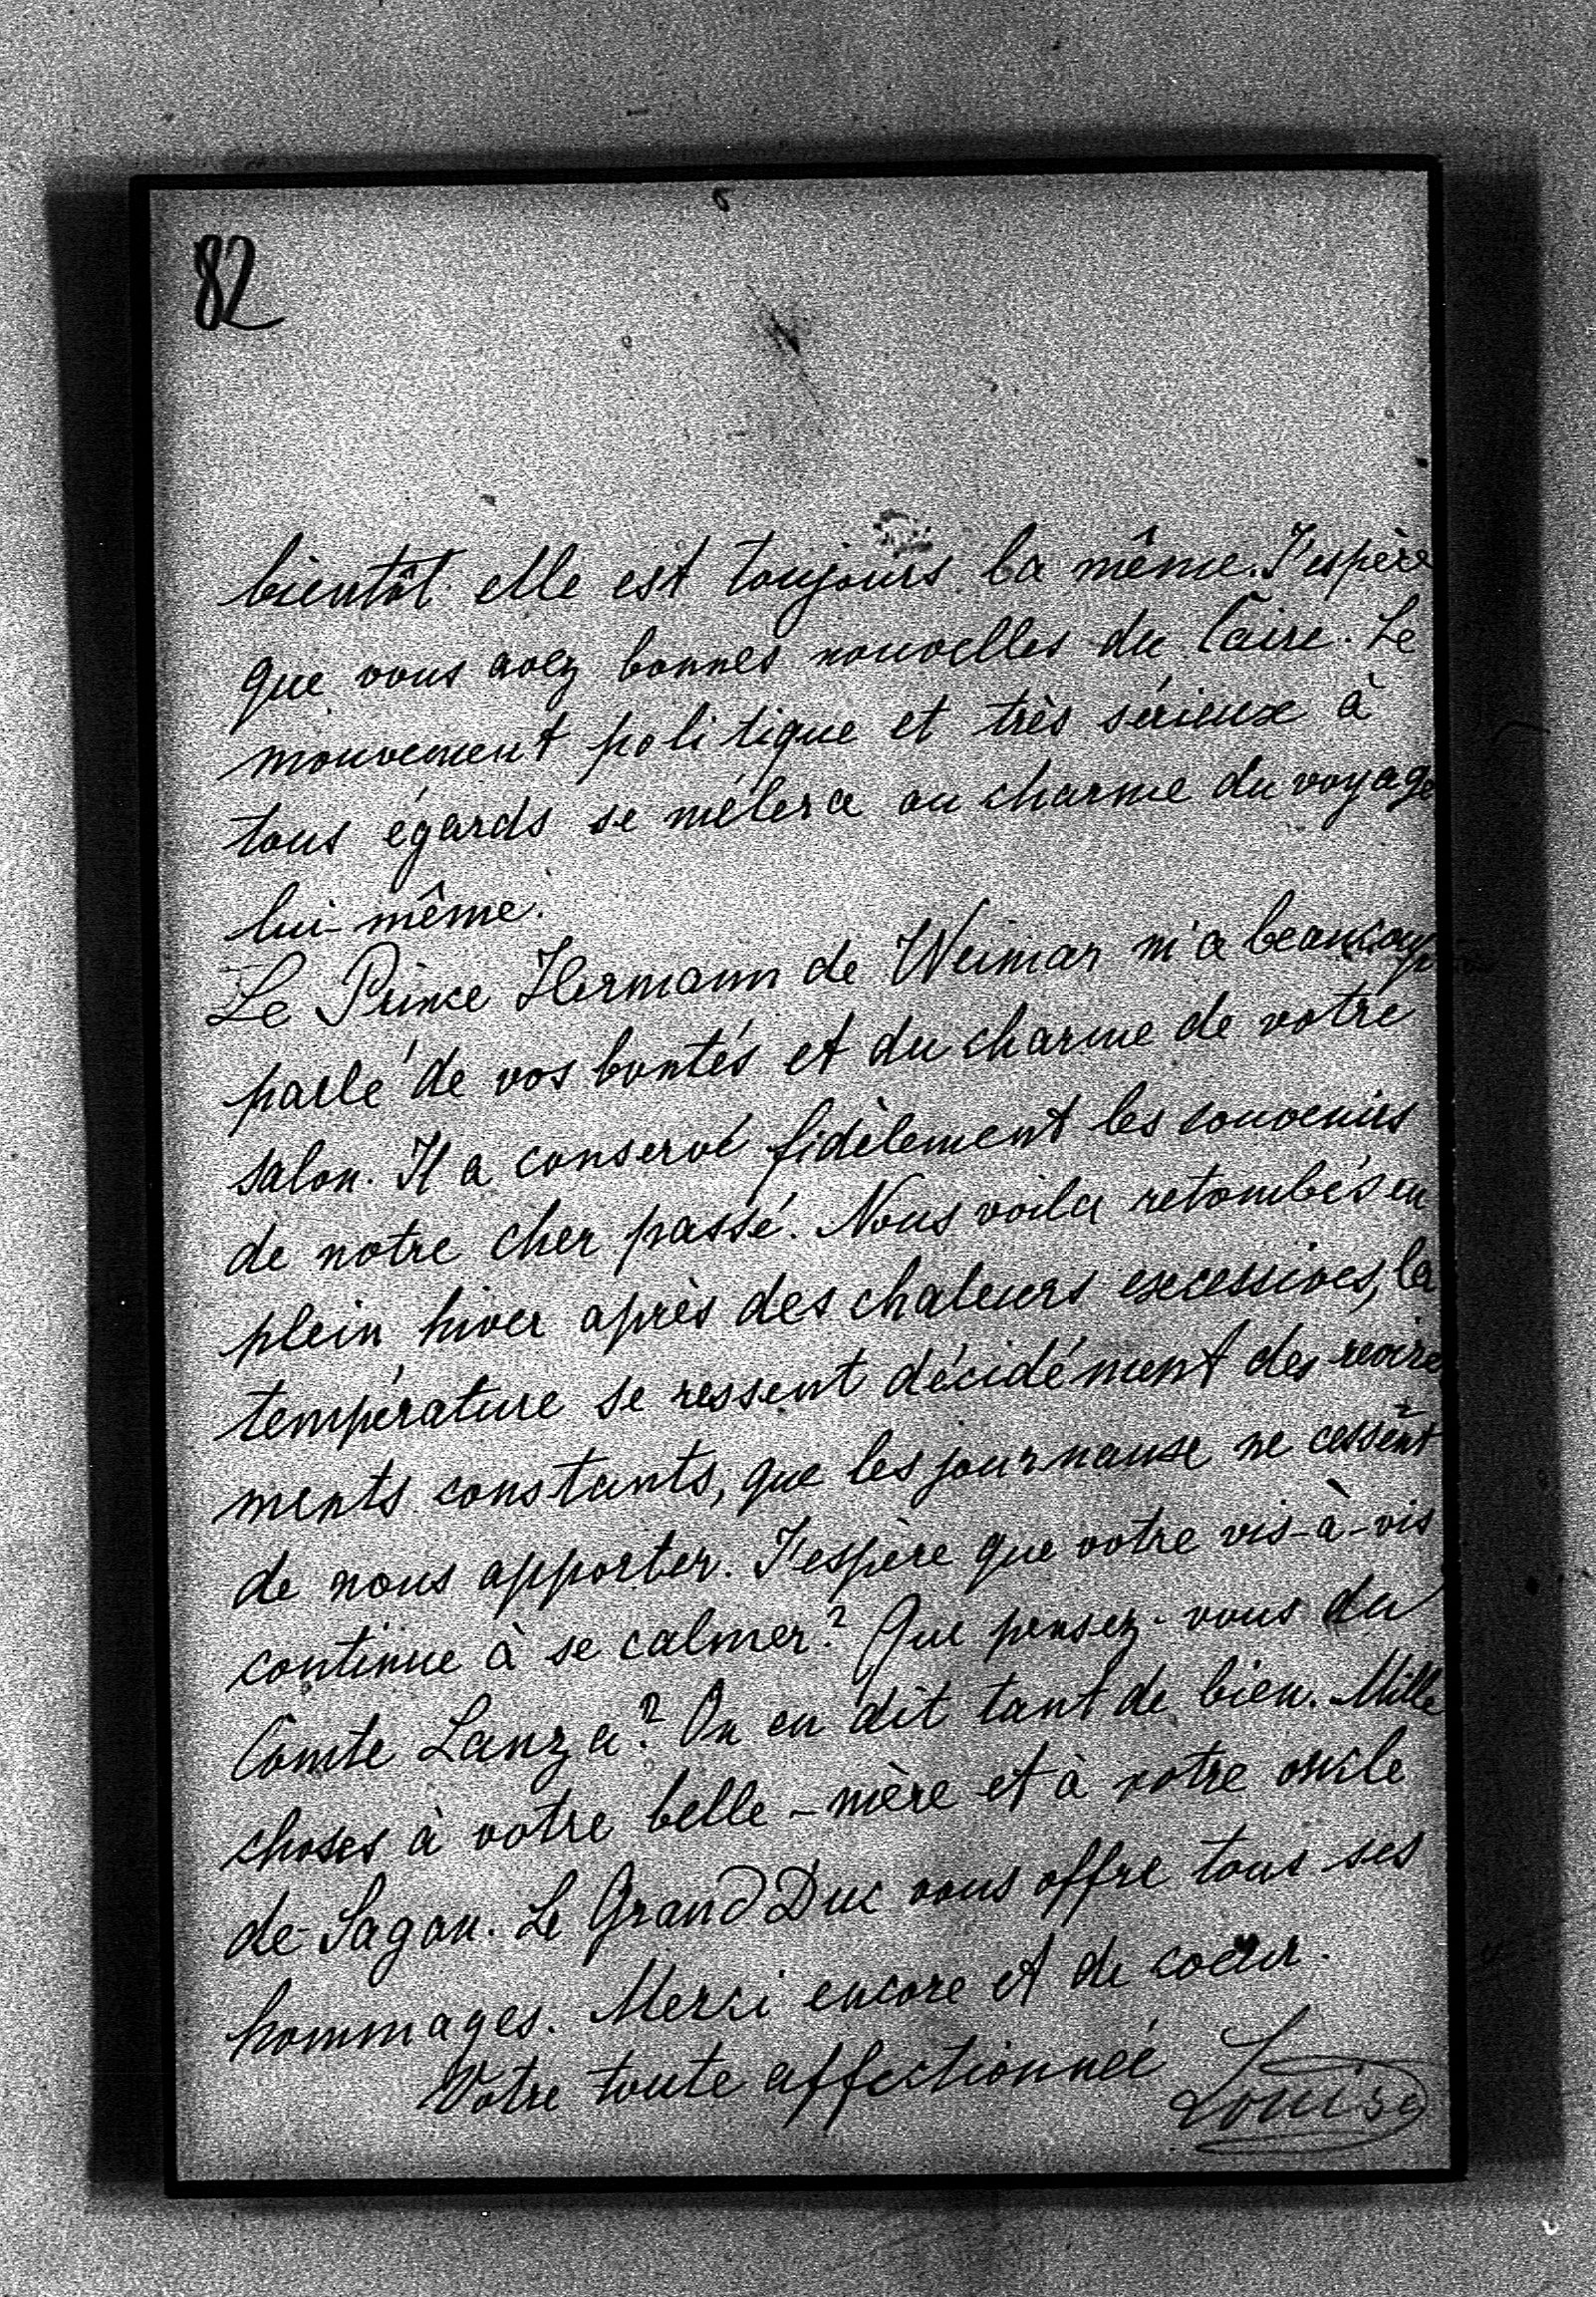 82
bientôt elle est toujours la même. J'espère
que vous avez bonnes nouvelles du Caire. Le
mouvement politique et très sérieux à
tous égards se mêlera au charme du voyage
lui-même.
Le Prince Hermann de Weimar m'a beaucoup
parlé de vos bontés et du charme de votre
salon. Il a conservé fidèlement les souvenirs
de notre cher passé. Nous voila retombés en
plein hiver après des chaleurs excessives, la
température se ressent décidément des revire
ments constants, que les journaux ne cessent
de nous apporter. J'espère que votre vis-à-vis
continue à se calmer? Que pensez-vous du
Comte Lanza? On en dit tant de bien. Mille
choses à votre belle-mère et à votre oncle
de Sagan. Le Grand Duc vous offre tous ses
hommages. Merci encore et de coeur.
Votre toute affectionnée
Louise